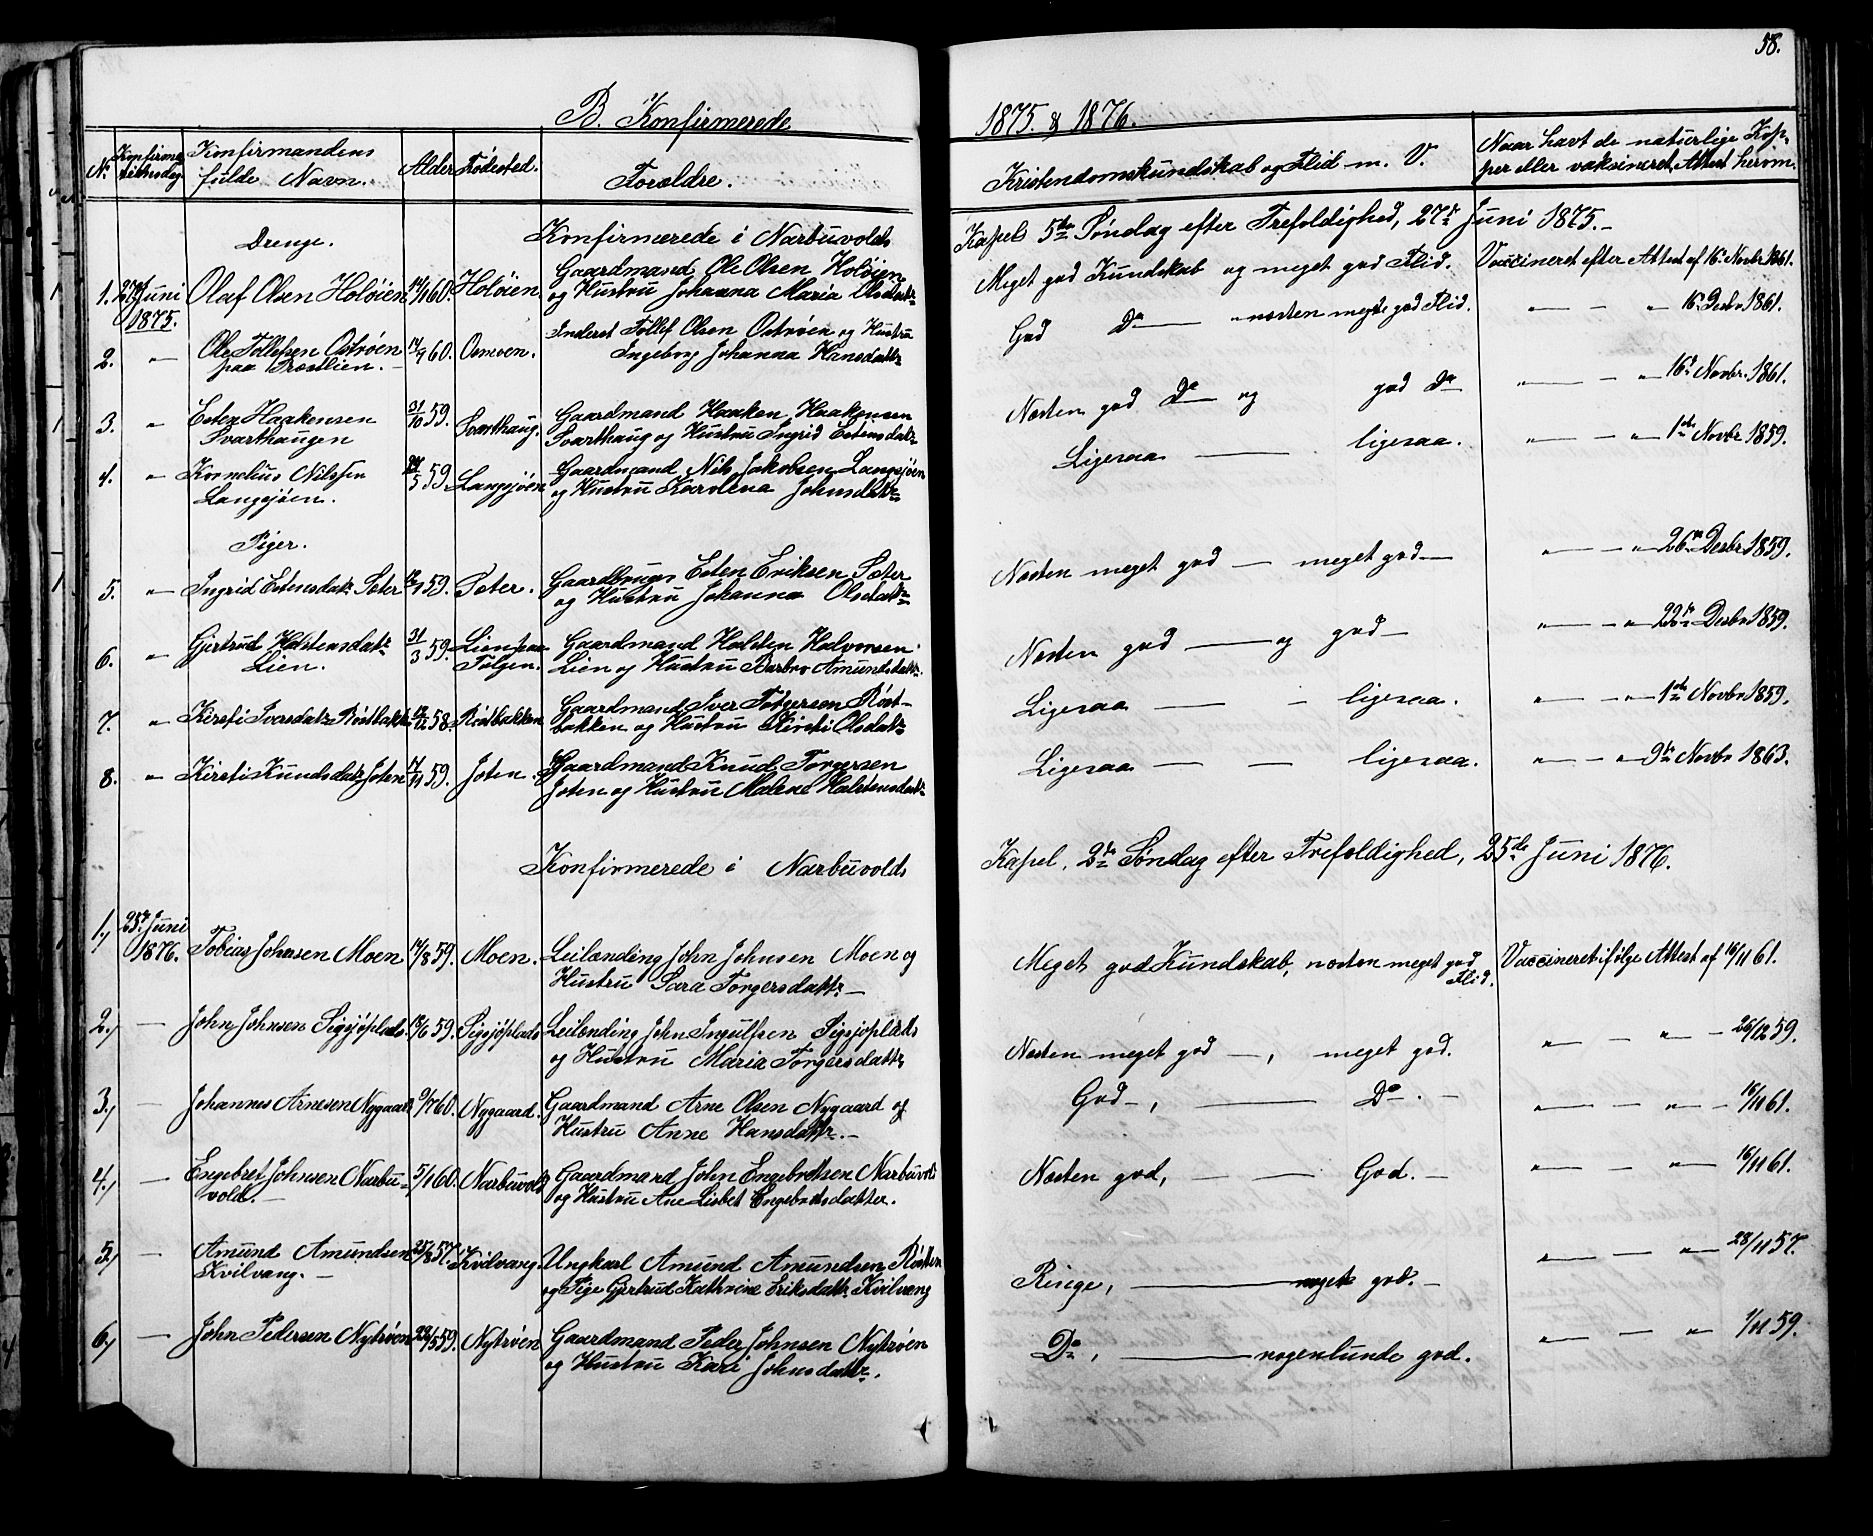 58.
B. Konfirmerede 1875 & 1876.
No Konfirmationsdag Konfirmandens fulde Navn. Alder Fødested. Forældre. Kristendomskundskab og Flid m. V. Naar havt de naturlige Kopper eller vaksineret, Attest herom.
Drenge. Konfirmerede i Narbuvolds Kapel 5te Søndag efter Trefoldighed, 27de Juni 1875.
1. 27de Juni 1875. Olaf Olsen Holøien 60. Holøien. Gaardmand Ole Olsen Holøien
og Hustru Johanna Maria Olsdatr Meget god Kundskab og meget god Flid. Vaccineret efter Attest af 16. Novbr 1861.
2. " Ole Tollefsen Ostrøen 60. Osmoen. Inderst Tollef Olsen Ostrøen og Hustru
paa Trostlien. Ingeborg Johanna Hansdatr God Do næsten meget god Flid. " — " 16. Desbr 1861.
3. " Esten Haakensen 31/10 59. Svarthaug. Gaardmand Haaken Haakensen
Svarthaugen Svarthaug og Hustru Ingrid Estensdatr Næsten god Do og god Do " — " 16. Novbr. 1861.
4. " Kornelius Nilssen 59. Langsjøen Gaardmand Nils Jakobsen Langsjøen
Langsjøen. og Hustru Karolena Johnsdatr Ligesaa — ligesaa. " — " 1ste Novbr 1859.
Piger.
5. " Ingrid Estensdatr Sæter 59. Sæter. Gaardbruger Esten Eriksen Sæter
og Hustru Johanna Olsdatr Næsten meget god — meget god — " — " 26. Desbr 1859.
6. " Gjertrud Halstensdatr 31/3 59. Lien paa Gaardmand Halsten Halvorsen
Lien. Tolgen. Lien og Hustru Barbro Amundsdatr. Næsten god — og god — " — " 22. Desbr 1859.
7. " Kirsti Iversdatr Røstbakk 58. Røstbakken Gaardmand Iver Torgersen Røst-
bakken og Hustru Kirsti Olsdatr Ligesaa — — ligesaa. " — " 1ste Novbr 1859.
8. " Kirsti Knudsdatr Joten 59. Joten. Gaardmand Knud Torgersen
Joten og Hustru Malene Halstensdatr. Ligesaa — — ligesaa. " — " 9de Novbr 1863.
Konfirmerede i Narbuvolds Kapel, 2de Søndag efter Trefoldighed, 25de Juni 1876.
1., 25de Juni 1876. Tobias Johnsen Moen 17/8 59. Moen. Leilænding John Johnsen Moen og
Hustru Sara Torgersdattr. — Meget god Kundskab, næsten meget god Flid. Vaccineret ifølge Attest af 16/11 61.
2., — John Johnsen Sigsjøplads. 59. Sigsjøplads Leilænding John Ingulfsen Sigsjøplads
og Hustru Maria Torgersdattr Næsten meget god —, meget god. " " — 26/12 59.
3., — Johannes Arnesen Nygaard 9/7 60. Nygaard. Gaardmand Arne Olsen Nygaard og
Hustru Anne Hansdattr. — God —, — Do. — " — " — 16/11 61.
4., — Engebret Johnsen Narbu- 5/1 60. Narbuvold Gaardmand John Engebretsen Narbuvold
vold. — og Hustru Ane Lisbet Engebretsdatter. Næsten god, — — God. — " — " — 16/11 61.
5., — Amund Amundsen 25/8 57. Kvilvang. Ungkarl Amund Amundsen Røsten
Kvilvang. — og Pige Gjertrud Kathrine Eriksdattr Kvilvang Ringe, — meget god. — " — " — 28/11 57.
6., — John Pedersen Nytrøen 22/5 59. Nytrøen Gaardmand Peder Johnsen Nytrøen
og Hustru Kari Johnsdattr. Do, — nogenlunde god. " — " 1/11 59.